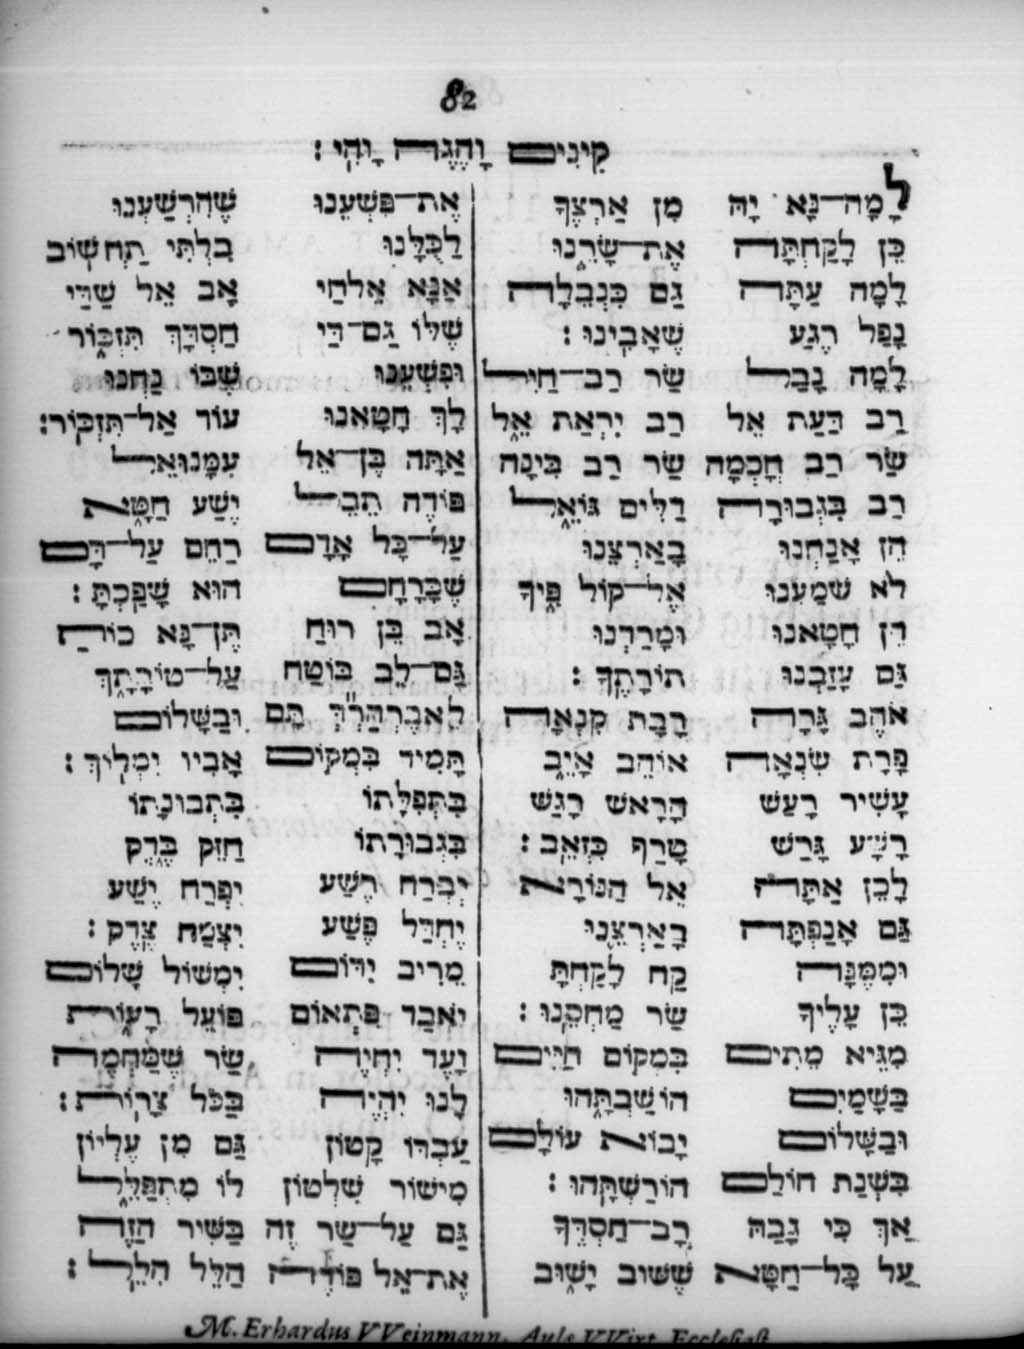 82
קִינִים וָהֶגֶה וָהִי :
לָמָה־נָּא יָהּ מִן אַרְצֶךָ
כֵּן לָקַחְתָּה אֶת־שָׂרֵנוּ
לָמָה עַתָּה גַּם כִּנְבֵלָה
נָפַל רֶגַע שֶׁאָבִינוּ :
לָמָה נָבַל שַׂר רַב־חַיִל
רַב דַּעַת אֵל רַב יִרְאַת אֵל
שַׂר רַב חָכְמָה שַׂר רַב בִּינָה
רַב בִּגְבוּרָה דַלִּים גּוֹאֵל
הֵן אֲנַחְנוּ בְאַרְצֵנוּ
לֹא שָׁמַעְנוּ אֶל־קוֹל פִּיךָ
הֵן חָטָאנוּ וּמָרַדְנוּ
גַּם עָזַבְנוּ תוֹרָתֶךָ :
אֹהֶב גָּרָה רָבַת קִנְאָה
פָּרַת שִׂנְאָה אוֹהֵב אָיֵב
עָשִׁיר רָעַשׁ הָרָאשׁ רָגַשׁ
רָשָׁע גָּרַשׁ טָרַף כִּזְאֵב :
לָכֵן אַתָּה אֵל הַנּוֹרָא
גַּם אָנַפְתָּה בְאַרְצֵנוּ
וּמִמֶּנָּה קַח לָקַחְתָּ
כֵּן עָלֶיךָ שַׂר מַחְסֵנוּ :
מִגֵּיא מֵתִים בִּמְקוֹם חַיִּים
בַּשָּׁמַיִם הוֹשַׁבְתָּהוּ
וּבַשָּׁלוֹם יָבוֹא עוֹלָם
בִּשְׁנַת חוֹלַם הוֹרַשְׁתָּהוּ :
אַךְ כִּי גָבַהּ רָב־חַסְדֶּךָ
עַל כָּל־חַטָּא שֶׁשּׁוּב יָשׁוּב
אֶת־פִּשְׁעֵנוּ שֶׁהִרְשַׁעְנוּ
לְכֻלָּנוּ בִלְתִּי תַחְשׁוֹב
אָנָּא אֱלֹהַי אָב אֵל שַׁדַּי
שֶׁלּוֹ גַם־דַּי חַסְדָּךְ תִּזְכּוֹר
וּפִשְׁעֵנוּ שֶׁבּוֹ נַחְנוּ
לָךְ חָטָאנוּ עוֹד אַל־תִּזְכּוֹר :
אַתָּה בֶּן־אֵל עִמָּנוּאֵל
פּוֹדֶה תֵבֵל יֶשַׁע חַטָּא
עַל־כָּל אָדָם רַחֵם עַל־דָּם
שֶׁכָּרָחָם הוּא שָׁפַכְתָּ :
אָב בֵּן רוּחַ תֶּן־נָּא כוֹחַ
גַּם־לֵב בּוֹטֵחַ עַל־טוֹרָתָךְ
תָּם וּבַשָּׁלוֹם
תָּמִיד בִּמְקוֹם אָבִיו יִמְלִיךְ :
בִּתְפִלָּתוֹ בִּתְבוּנָתוֹ
בִּגְבוּרָתוֹ חַזֵּק בֶּדֶק
יִבְרַח רֶשַׁע יִפְרַח יֶשַׁע
יֶחְדַּל פֶּשַׁע יִצְמַח צֶדֶק :
מֵרִיב יִדּוֹם יִמְשׁוֹל שָׁלוֹם
יֹאבַד פִּתְאוֹם פּוֹעֵל רָעוֹת
וָעֶד יִחְיֶה שַׂר
לָנוּ יִהְיֶה בַּכֹּל צָרוֹת :
עַבְדּוֹ קָטוֹן גַּם מִן עֶלְיוֹן
מִישׁוֹר שִׁלְטוֹן לוֹ מִתְפַּלֵּל
גַּם עַל־שַׂר זֶה בַּשִּׁיר הַזֶּה
אֶת־אֵל פּוֹדֶה הַלֵּל הִלֵּל :
M. Erhardus VVeinmann, Aulæ VVirt. Ecclesiast.